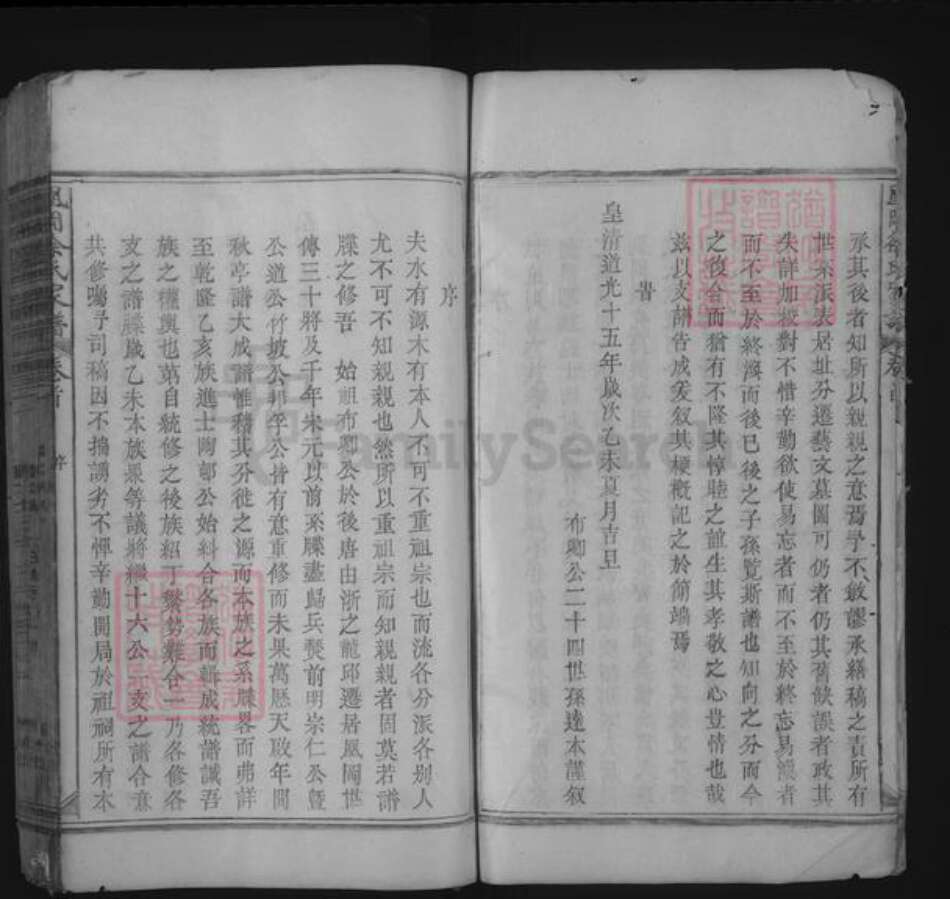 承其後者知所以親親之意焉予不敏謬承繕稿之責所有
世系派表居址分遷藝文墓圖可仍者仍其舊缺誤者政其
失詳加校對不惜辛勤欲使易忘者而不至於終忘易渙者
而不至於終渙而後已後之子孫覽斯譜也知向之分而今
之後合而猶有不隆其惇睦之誼生其孝敬之心豈情也哉
茲以支譜告成爰叙其梗概記之於簡端焉
旹
皇清道光十五年歲次乙未夏月吉旦
布卿公二十四世孫達本謹叙
序
夫水有源木有本人不可不重祖宗也而流各分派各別人
尤不可不知親親也然所以重祖宗而知親親者固莫若譜
牒之修吾 始祖布卿公於後唐由浙之龍邱遷居鳳岡世
傳三十將及千年宋元以前系牒盡歸兵燹前明宗仁公暨
公道公竹坡公邦孚公皆有意重修而未果萬歷天啟年間
秋亭譜大成譜惟積其分徙之源而本族之系牒畧而弗詳
至乾隆乙亥族進士陶郡公始糾合各族而輯成統譜誠吾
族之權輿也第自統修之後族紹丁繁勢難合一乃各修各
支之譜牒歲乙未本族衆等議將繼十大公支之譜合意
共修囑予司稿因不揣謭劣不憚辛勤開局於祖祠所有本
鳳岡余氏家譜 卷首 序
FamilySearch